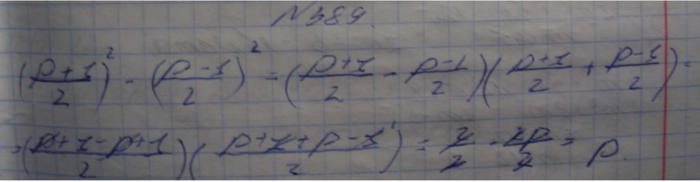 N389.
(p+1/2)² - (p-1/2)² = (p+1/2 - p-1/2)(p+1/2 + p-1/2) =
=(p+1-p+1/2)(p+1+p-1/2) = 2/2 · 2p/2 = p.